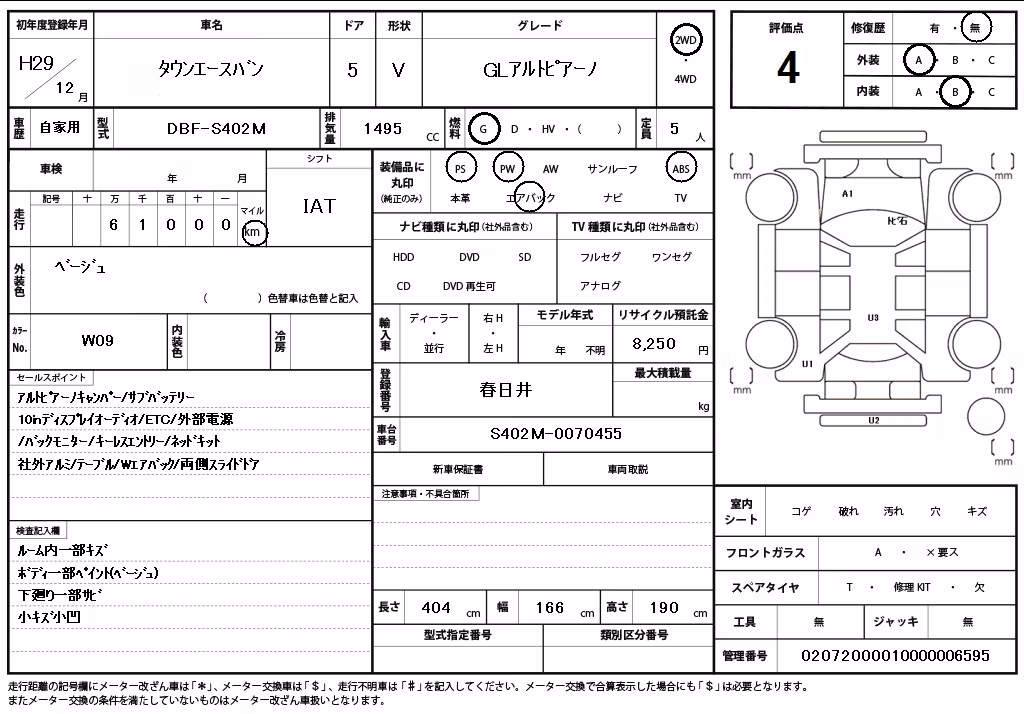 初年度登録年月 車名 ドア 形状 グレード
H29 12 月 タウンエースバン 5 V GLアルトピアーノ 2WD ・ 4WD
評価点 4
修復歴 有 ・ 無
外装 A ・ B ・ C
内装 A ・ B ・ C
車歴 自家用 型式 DBF-S402M 排気量 1495 CC 燃料 G D ・ HV ・ ( ) 定員 5 人
車検 年 月 シフト
IAT
走行 記号 十 万 千 百 十 一 マイル
6 1 0 0 0 km
装備品に丸印(純正のみ) PS PW AW サンルーフ ABS
本革 エアバック ナビ TV
ナビ種類に丸印(社外品含む) TV 種類に丸印(社外品含む)
HDD DVD SD フルセグ ワンセグ
CD DVD 再生可 アナログ
外装色 ベージュ
( ) 色替車は色替と記入
カラーNo. W09 内装色 冷房
輸入車 ディーラー ・ 並行 右H ・ 左H モデル年式 年 不明 リサイクル預託金 8,250 円
登録番号 春日井 最大積載量 kg
車台番号 S402M-0070455
新車保証書 車両取説
セールスポイント
アルトピアーノキャンパー/サブバッテリー
10inディスプレイオーディオ/ETC/外部電源
/バックモニター/キーレスエントリー/ネッドキット
社外アルミ/テーブル/Wエアバック/両側スライドドア
注意事項・不具合箇所
検査記入欄
ルーム内一部キズ
ボディー部ペイント(ベージュ)
下廻り一部サビ
小キズ小凹
長さ 404 cm 幅 166 cm 高さ 190 cm
型式指定番号 類別区分番号
[ ] mm [ ] mm
A1
飛石
U3
U1
[ ] mm [ ] mm
U2
[ ] mm
室内シート コゲ 破れ 汚れ 穴 キズ
フロントガラス A ・ ×要ス
スペアタイヤ T ・ 修理 KIT ・ 欠
工具 無 ジャッキ 無
管理番号 02072000010000006595
走行距離の記号欄にメーター改ざん車は「＊」、メーター交換車は「＄」、走行不明車は「＃」を記入してください。メーター交換で合算表示した場合にも「＄」は必要となります。
またメーター交換の条件を満たしていないものはメーター改ざん車扱いとなります。